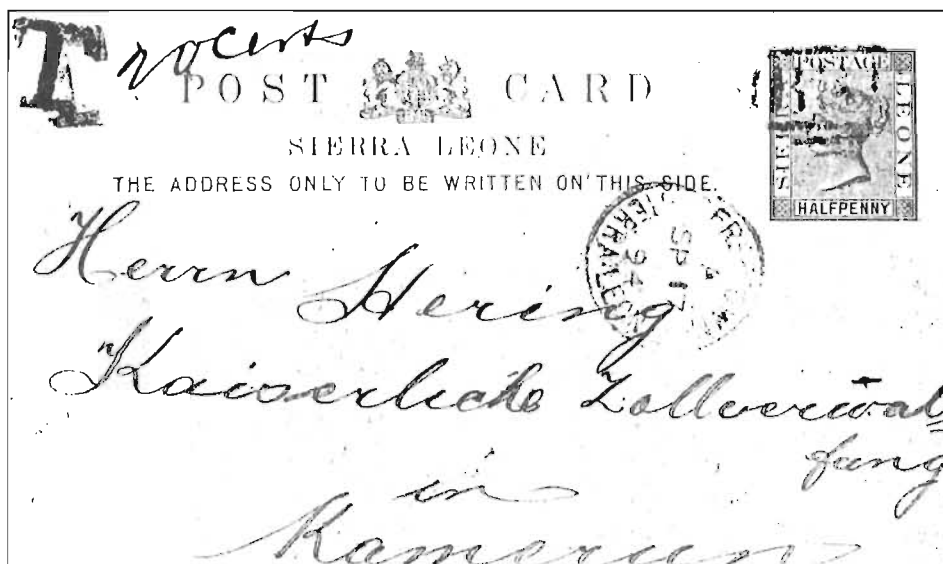 T 20 cents
POST CARD
SIERRA LEONE
THE ADDRESS ONLY TO BE WRITTEN ON THIS SIDE.
POSTAGE
SIERRA
LEONE
HALFPENNY
SIERRA LEONE
SP 17
94
Herrn Hering
Kaiserliche Zollverwal=
tung
in
Kamerun